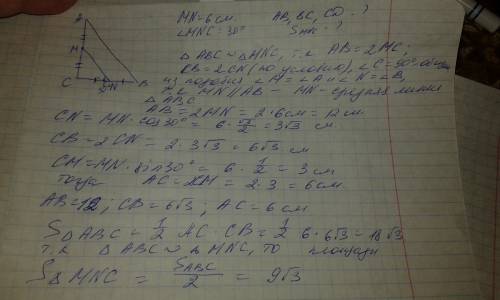 A
M
C
N
B
MN=6 см.
∠MNC=30°
AB, BC, CA ?
S_MNC ?
△ABC ∾ △MNC, т.к. AB=2MC;
KB=2CN (по условию), ∠C=90°-общий
из подобия ∠A=∠A и ∠N=∠B,
т.к. MN∥AB – MN-средняя линия
△ABC.
AB=2MN=2·6см=12см.
CN=MN·cos30°=6·√3/2=3√3 см.
CB=2CN=2·3√3=6√3 см
CM=MN·sin30°=6·1/2=3 см
тогда AC=2M=2·3=6см.
AB=12, CB=6√3; AC=6 см
S△ABC=1/2 AC·CB=1/2 6·6√3=18√3
т.к. △ABC∾△MNC, то площади
S△MNC=S_ABC/2=9√3